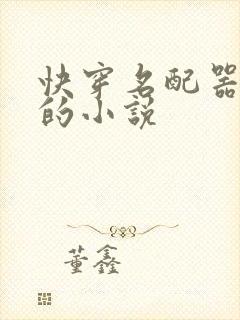 快穿名配器
的小說
董鑫